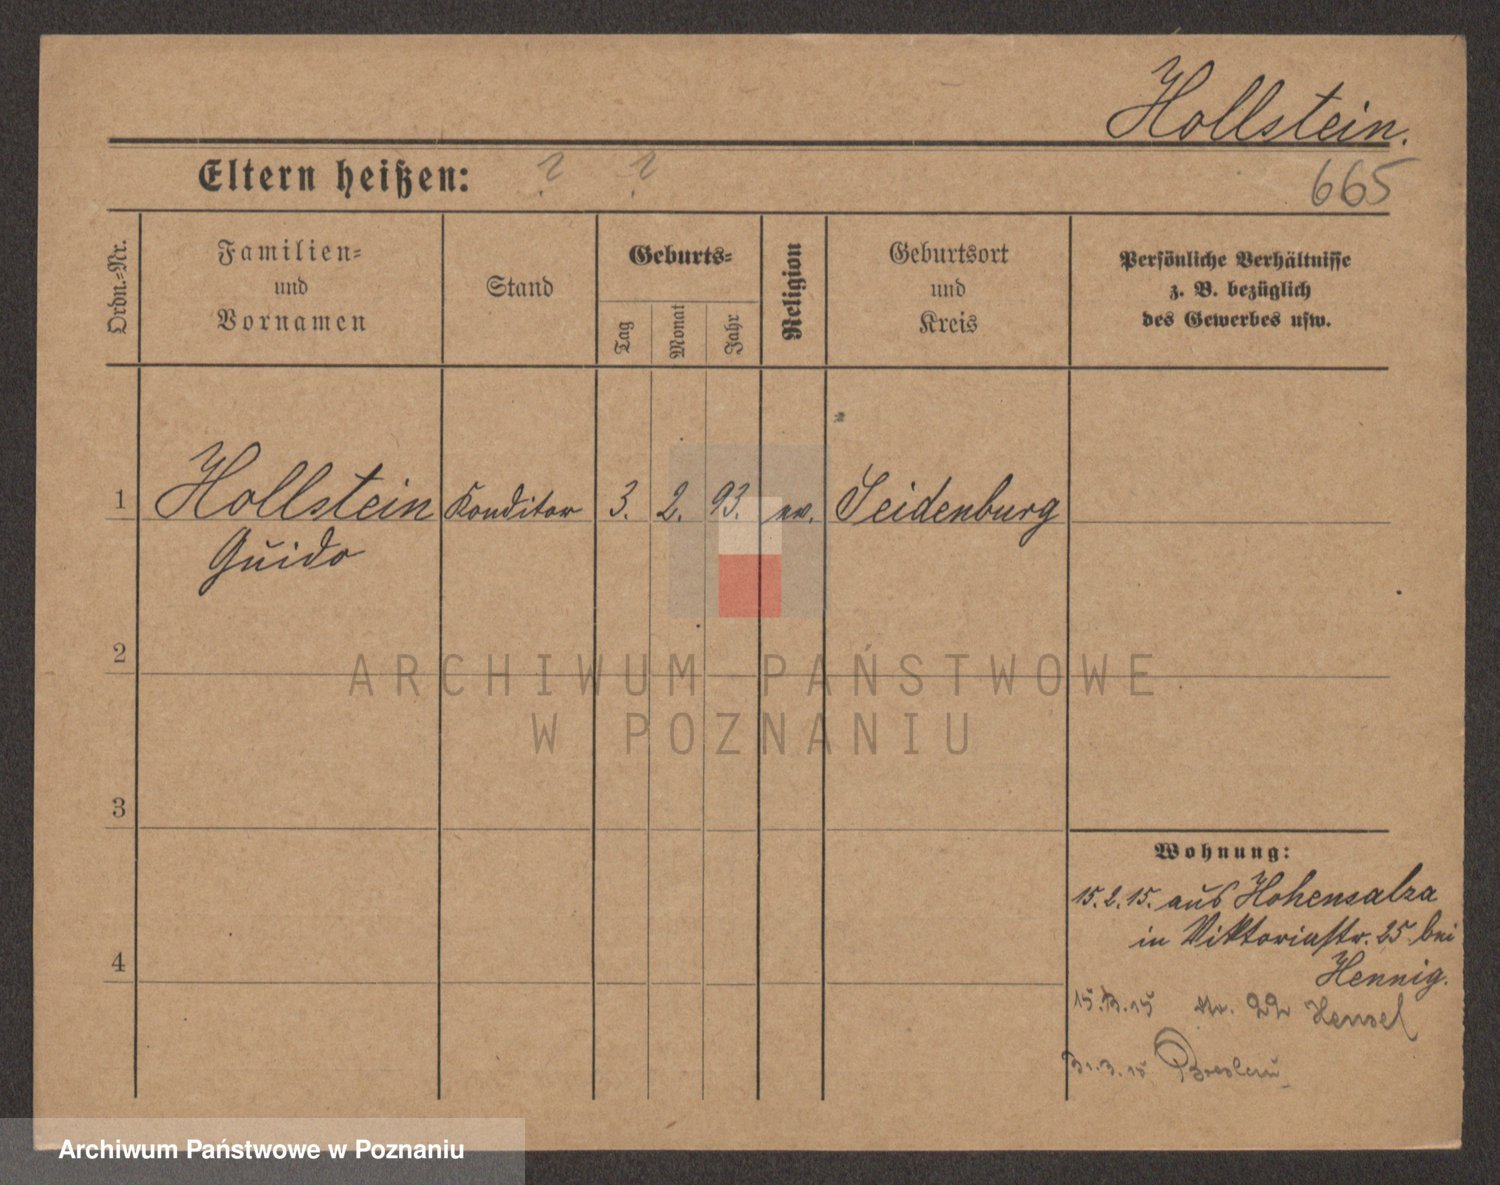 Hollstein.
665
Eltern heißen: ? ?
Ordn.-Nr.
Familien-
und
Vornamen
Stand
Geburts-
Tag
Monat
Jahr
Religion
Geburtsort
und
Kreis
Persönliche Verhältnisse
z. B. bezüglich
des Gewerbes usw.
1 Hollstein Konditor 3. 2. 93. ev. Seidenburg
Guido
2
3
4
Wohnung:
15.2.15. aus Hohensalza
in Viktoriastr. 25 bei
Hennig.
15.3.15 22 Hensel
31.3.15 Breslau
ARCHIWUM PAŃSTWOWE
W POZNANIU
Archiwum Państwowe w Poznaniu